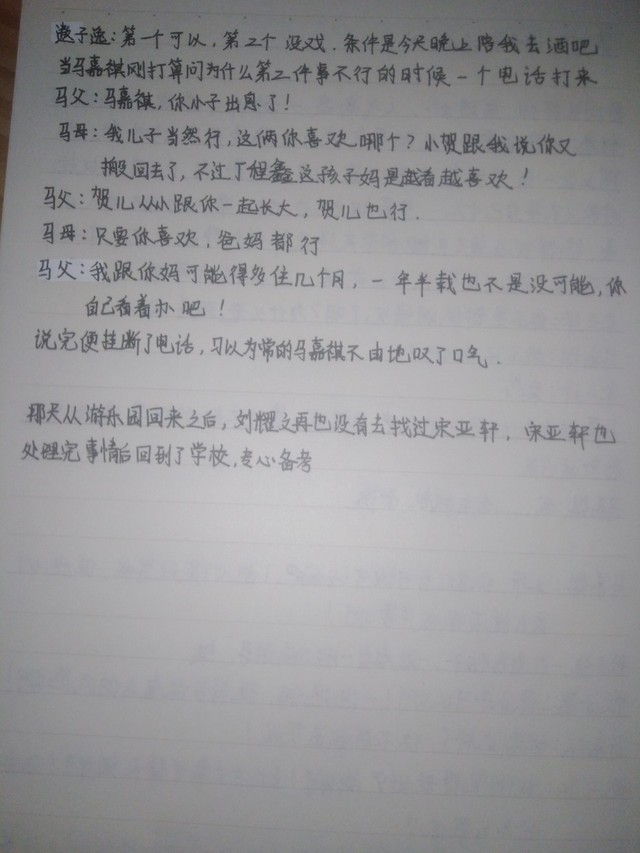 遂子遂：第一个可以，第2个没戏．条件是今天晚上陪我去酒吧
当马嘉祺刚打算问为什么第二件事不行的时候一个电话打来
马父：马嘉祺，你小子出息了！
马母：我儿子当然行，这俩你喜欢哪个？小贺跟我说你又
搬回去了，不过丁程鑫这孩子妈是越看越喜欢！
马父：贺儿从小跟你一起长大，贺儿也行．
马母：只要你喜欢，爸妈都行
马父：我跟你妈可能得多住几个月，一年半载也不是没可能，你
自己看着办吧！
说完便挂断了电话，习以为常的马嘉祺不由地叹了口气．
那天从游乐园回来之后，刘耀文再也没有去找过宋亚轩．宋亚轩也
处理完事情后回到了学校，专心备考